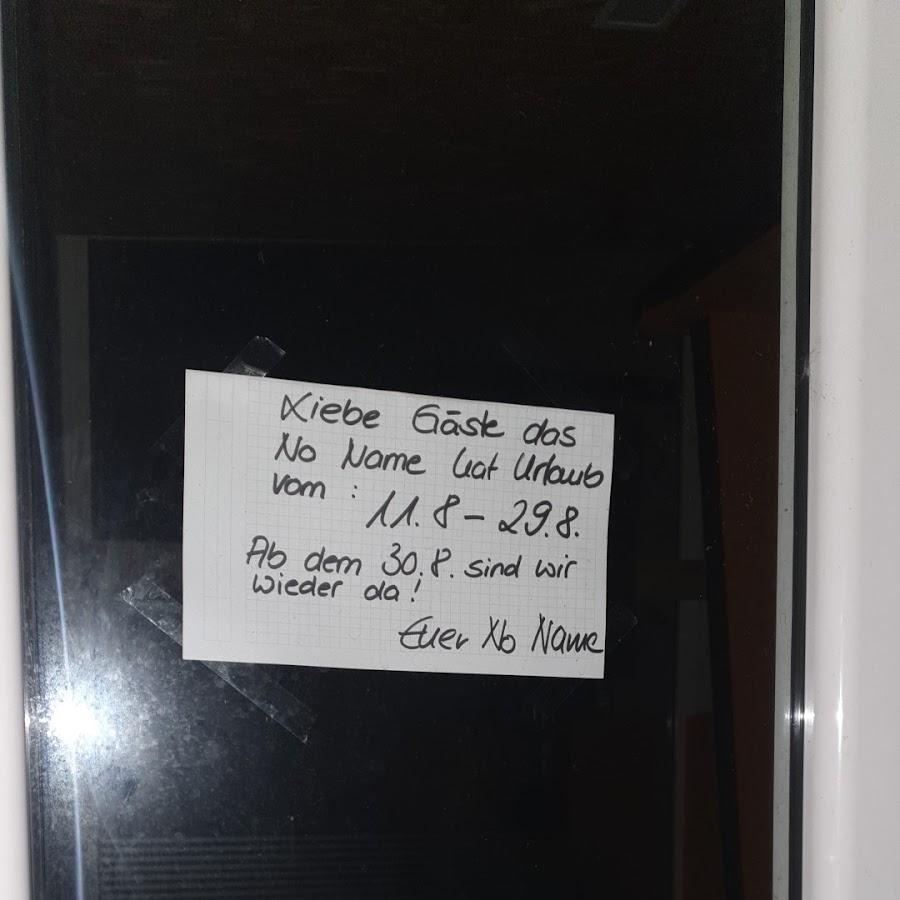 Liebe Gäste das
No Name hat Urlaub
vom : 11.8 - 29.8.
Ab dem 30.8. sind wir
wieder da!
Euer No Name